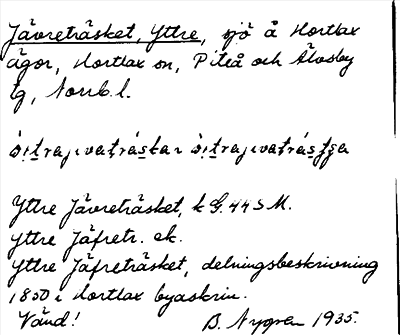 Jävreträsket, Yttre, sjö å Hortlax
ägor, Hortlax sn, Piteå och Älvsby
tg, Norrb. l.
Yttre Jävreträsket, k G. 44 S M.
Yttre Jäfretr. ek.
Yttre Jäfreträsket, delningsbeskrivning
1850 i Hortlax byaskrin.
Vänd! B. Nygren 1935.